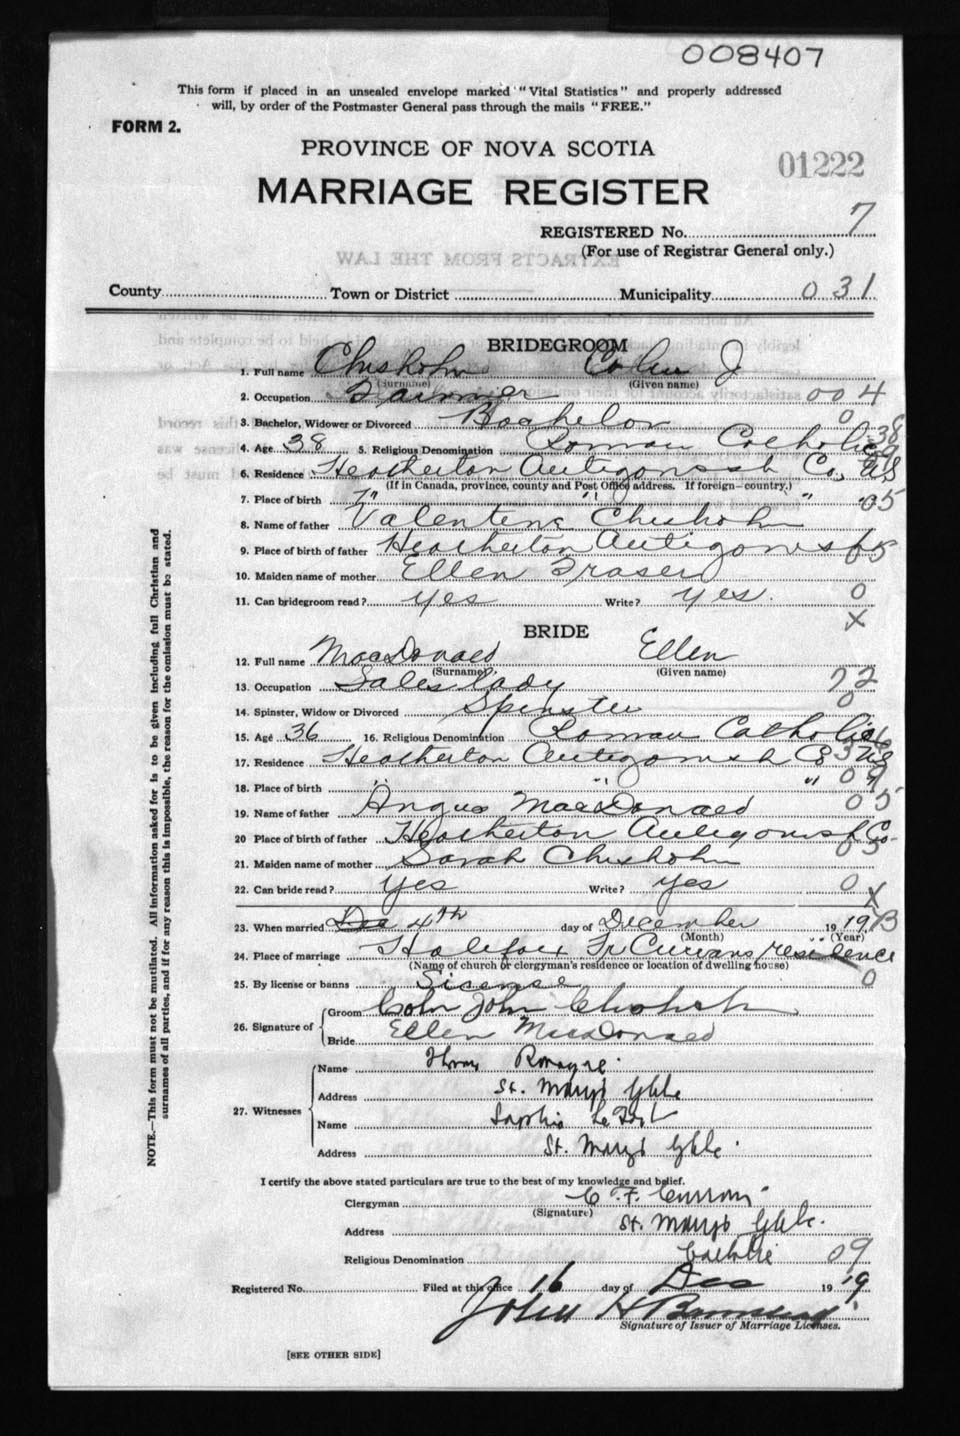 008407
This form if placed in an unsealed envelope marked "Vital Statistics" and properly addressed
will, by order of the Postmaster General pass through the mails "FREE."
FORM 2.
PROVINCE OF NOVA SCOTIA
01222
MARRIAGE REGISTER
REGISTERED No. 7
(For use of Registrar General only.)
EXTRACTS FROM THE LAW
County Town or District Municipality 031
BRIDEGROOM
1. Full name Chisholm Colin J
(Surname) (Given name)
2. Occupation Farmer 004
3. Bachelor, Widower or Divorced Bachelor 0
4. Age 38 5. Religious Denomination Roman Catholic 38
6. Residence Heatherton Antigonish Co, NS
(If in Canada, province, county and Post Office address. If foreign—country.)
7. Place of birth " " " 05
8. Name of father Valentine Chisholm
9. Place of birth of father Heatherton Antigonish
10. Maiden name of mother Ellen Fraser
11. Can bridegroom read? yes Write? yes. 0
X
BRIDE
12. Full name MacDonald Ellen
(Surname) (Given name)
13. Occupation Sales lady 72
14. Spinster, Widow or Divorced Spinster 0
15. Age 36 16. Religious Denomination Roman Catholic
17. Residence Heatherton Antigonish Co NS
18. Place of birth " " " 09
19. Name of father Angus MacDonald 05
20 Place of birth of father Heatherton Antigonish Co
21. Maiden name of mother Sarah Chisholm
22. Can bride read? Yes Write? yes 0 X
23. When married Dec 4th day of December 1919
(Month) (Year)
24. Place of marriage Halifax Fr Currans residence
(Name of church or clergyman's residence or location of dwelling house)
25. By license or banns License 0
26. Signature of Groom Colin John Chisholm
Bride Ellen MacDonald
27. Witnesses
Name Thomas Romayne
Address St. Mary's Glebe
Name Sophia
Address St. Mary's Glebe
I certify the above stated particulars are true to the best of my knowledge and belief.
Clergyman C. F. Curran
(Signature)
Address St. Mary's Glebe.
Religious Denomination Catholic 09
Registered No. Filed at this office 16 day of Dec 1919
John H
Signature of Issuer of Marriage Licenses.
[SEE OTHER SIDE]
NOTE.—This form must not be mutilated. All information asked for is to be given including full Christian and
surnames of all parties, and if for any reason this is impossible, the reason for the omission must be stated.